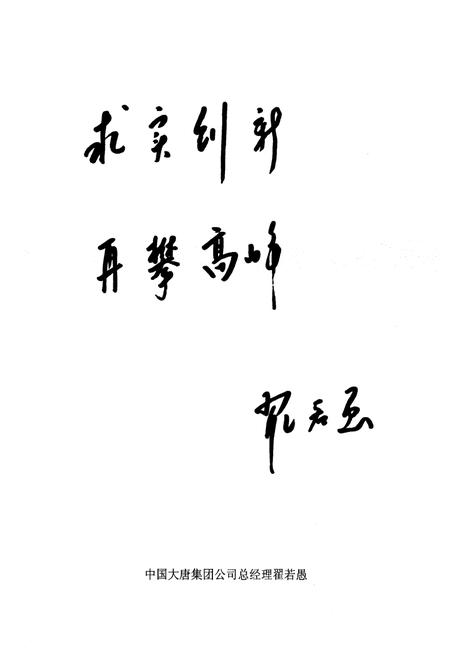 求实创新
再攀高峰
翟若愚
中国大唐集团公司总经理翟若愚